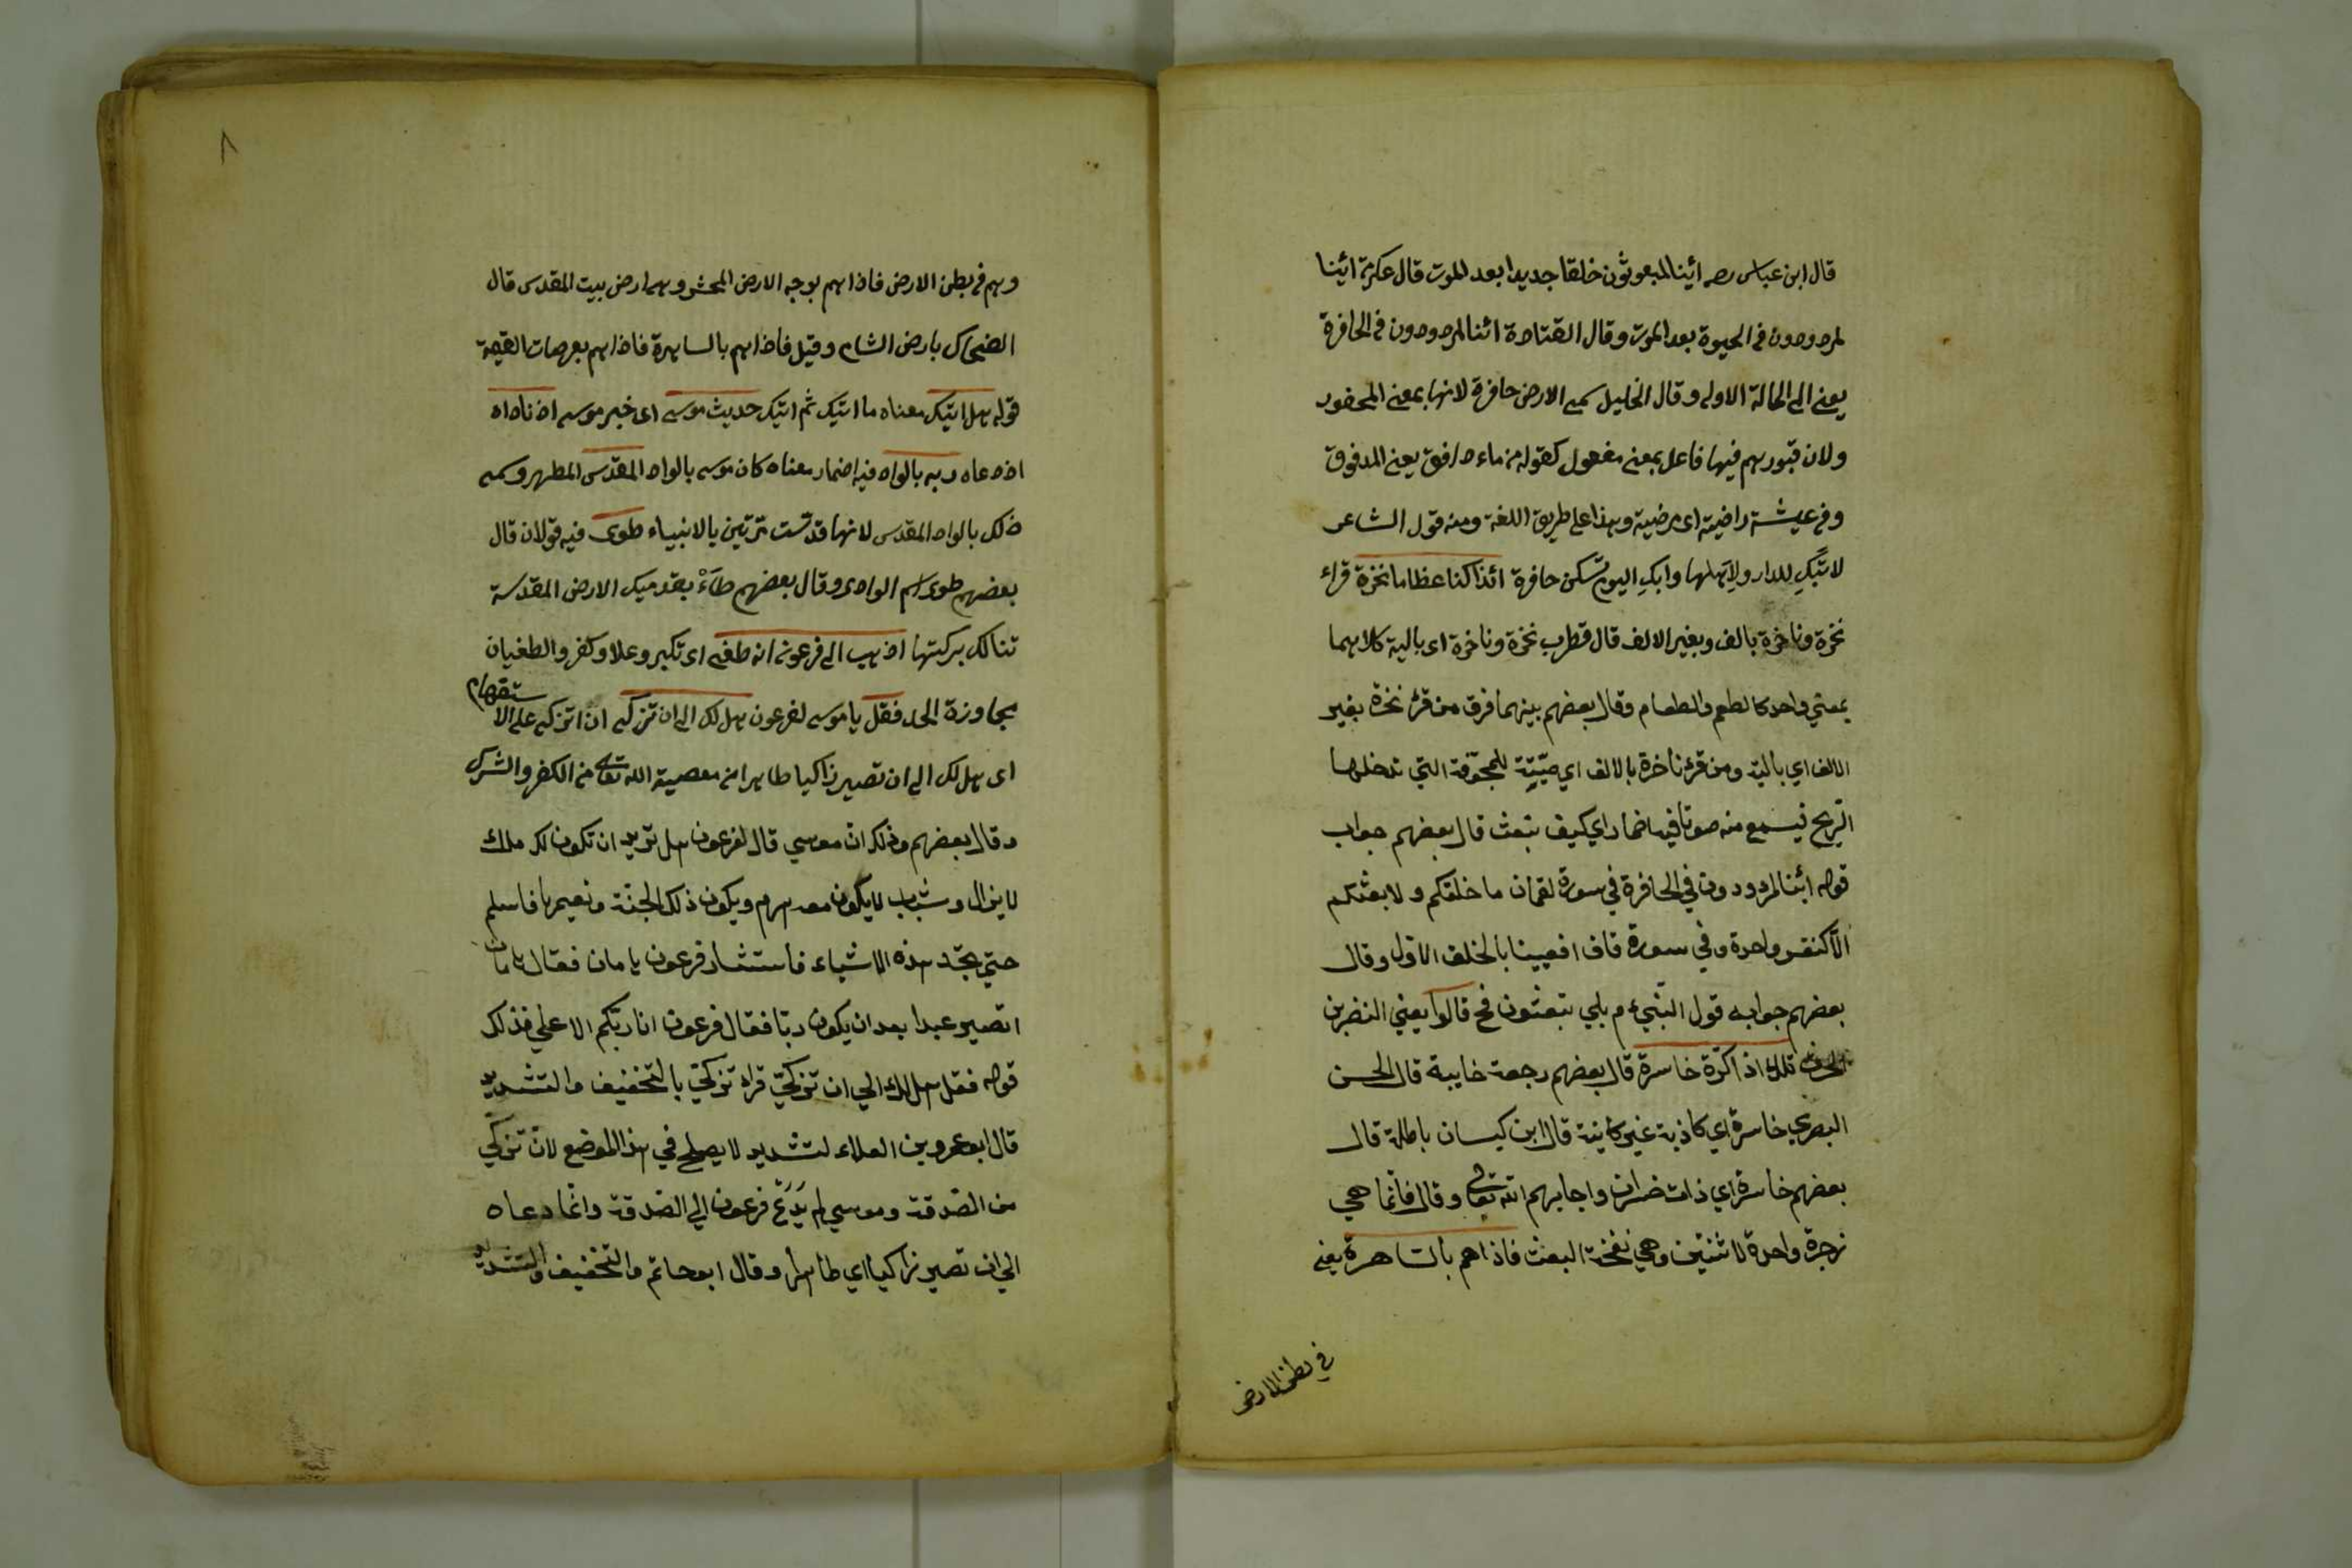 قال ابن عباس رصه ائينا لمبعوثون خلقا جديدا بعد الموت قال عكرمة ائينا
لمردودون في الحيوة بعد الموت وقال القتادة ائنا لمردودون في الحافرة
يعني الى الحالة الاولى وقال الخليل سمى الارض حافرة لانها بمعنى المحفور
ولان قبورهم فيها فاعل بمعنى مفعول كقوله من ماء دافق يعني المدفوق
وفى عيشة راضية اى مرضية وهذا على طريق اللغة ومنه قول الشاعر
لا تبك للدار ولا اهلها وابك اليوم تسكن حافرة ائذا كنا عظاما نخرة قراء
نخرة وناخرة بالف وبغير الالف قال قطرب نخرة وناخرة اى بالية كلاهما
بمعني واحد كالطعم والطعام وقال بعضهم بينهما فرق من قرئ نخرة بغير
الالف اي بالية ومن قرئ ناخرة بالالف اي ميّتة للمجوّفة التي تدخلها
الريح فيسمع منه صوتا فيه اضمار اي كيف نبعث قال بعضهم جواب
قوله ائنا لمردودون في الحافرة في سورة لقمان ما خلقكم ولا بعثكم
الّا كنفس واحدة وفي سورة قاف افعيينا بالخلق الاوّل وقال
بعضهم جوابه قول النّبيء م بلي تبعثون فح قالوا يعني النضر بن
الحرث تلك اذا كرّة خاسرة قال بعضهم رجعة خايبة قال الحسن
البصري خاسرة اي كاذبة غير كاينة قال ابن كيسان باطلة قال
بعضهم خاسرة اي ذات خسران واجابهم الله تعالى وقال فانما هي
زجرة واحدة لا ثنتين وهي نفخة البعث فاذا هم بالساهرة يعنى
في بطن الارض
٨
وهم فى بطن الارض فاذا هم بوجه الارض المحشر وهى ارض بيت المقدس قال
الضحاك بارض الشام وقيل فاذا هم بالساهرة فاذا هم بعرصات القيمة
قوله هل اتيك معناه ما اتيك ثم اتيك حديث موسى اى خبر موسى اذ ناداه
اذ دعاه ربه بالواد فيه اضمار معناه كان موسى بالواد المقدس المطهر وسمى
ذلك بالواد المقدس لانها قدست مرتين بالانبياء طوى فيه قولان قال
بعضهم طوى اسم الوادى وقال بعضهم طاءْ بقدميك الارض المقدسة
تنالك بركتها اذهب الى فرعون انه طغى اى تكبر وعلا وكفر والطغيان
مجاوزة الحد فقل يا موسى لفرعون هل لك الى ان تزكى اى اتزكى على الاستفهام
اى هل لك الى ان تصير زاكيا طاهرا من معصية الله تعالى من الكفر والشرك
وقال بعضهم وذلك ان موسي قال لفرعون هل تريد ان تكون لك ملك
لا يزال وشباب لا يكون معه هرم ويكون ذلك الجنة ونعيمها فاسلم
حتي تجد هذه الاشياء فاستشار فرعون هامان فقال هامان
اتصير عبدا بعد ان يكون ربّا فقال فرعون انا ربّكم الاعلي فذلك
قوله فقل هل لك الي ان تزكّي قراه تزكّي بالتخفيف والتشديد
قال ابو عمرو بن العلاء لتشديد لا يصلح في هذا الموضع لانّ تزكّي
من الصّدقة وموسي لم يَدَع فرعون الي الصّدقة وانّما دعاه
الي ان تصير زاكيا اي طاهرا وقال ابو حاتم والتخفيف والتشديد